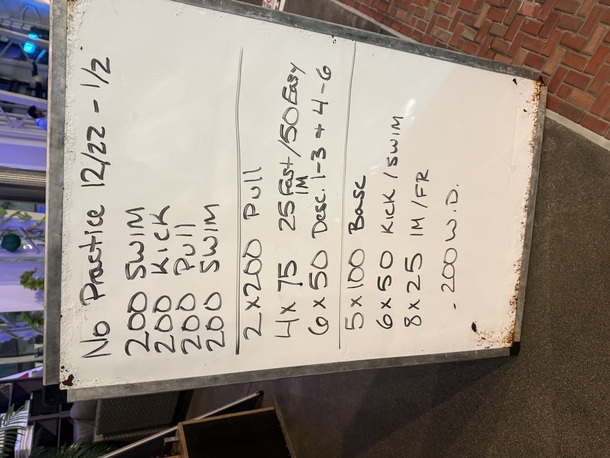 No Practice 12/22 - 1/2
200 SWIM
200 KICK
200 Pull
200 SWIM
2 x 200 Pull
4 x 75 25 Fast / 50 Easy
IM
6 x 50 Desc. 1-3 + 4-6
5 x 100 Base
6 x 50 KICK / SWIM
8 x 25 IM / FR
- 200 W.D.